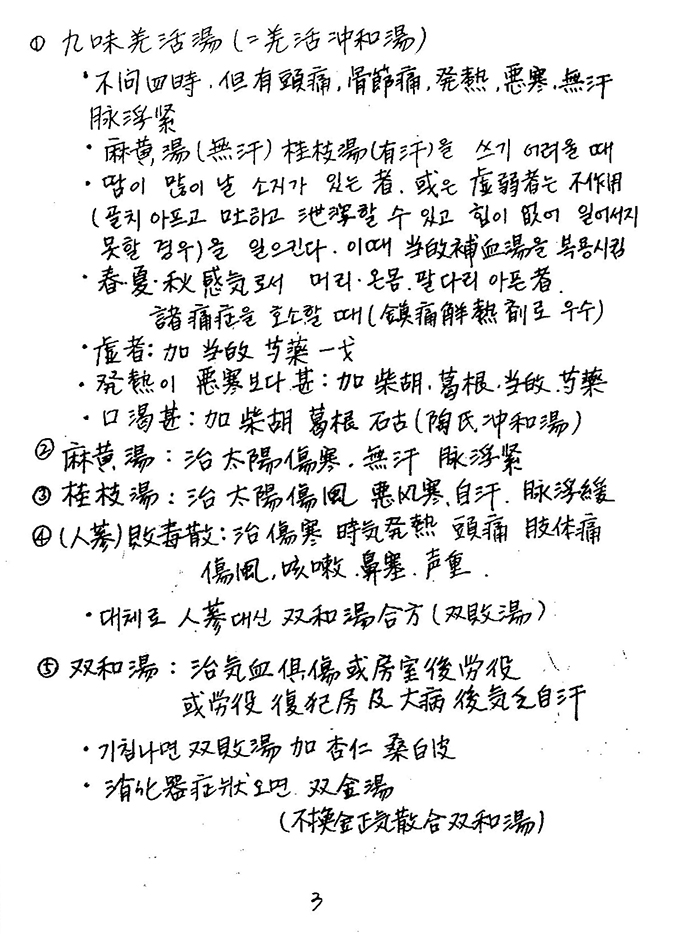 ① 九味羌活湯(=羌活冲和湯)
・不问四時.但有頭痛,骨節痛,発熱,悪寒,無汗
脉浮緊
・麻黄湯(無汗) 桂枝湯(有汗)을 쓰기 어려울 때
・땀이 많이 날 소지가 있는 者. 或은 虛弱者는 不作用
(팔치 아프고 吐하고 泄瀉할 수 있고 힘이 없어 일어서지
못할 경우)을 일으킨다. 이때 当帰補血湯을 복용시킴
・春·夏·秋 感気로서 머리·온몸.팔다리 아픈者.
諸痛症을 호소할 때(鎮痛解熱剤로 우수)
・虛者: 加 当帰 芍薬 一戈
・発熱이 悪寒보다 甚: 加 柴胡.葛根.当帰.芍薬
・口渴甚: 加 柴胡 葛根 石古(陶氏冲和湯)
② 麻黄湯: 治 太陽傷寒. 無汗 脉浮緊
③ 桂枝湯: 治 太陽傷風 悪风寒.自汗. 脉浮緩
④ (人蔘)敗毒散: 治 傷寒 時気発熱 頭痛 肢体痛
傷風,咳嗽.鼻塞.声重.
・대체로 人蔘대신 双和湯合方(双敗湯)
⑤ 双和湯: 治気血俱傷或房室後労役
或労役 復犯房及大病後気乏自汗
・기침나면 双敗湯 加 杏仁 桑白皮
・消化器症状오면 双金湯
(不換金正気散合双和湯)
3